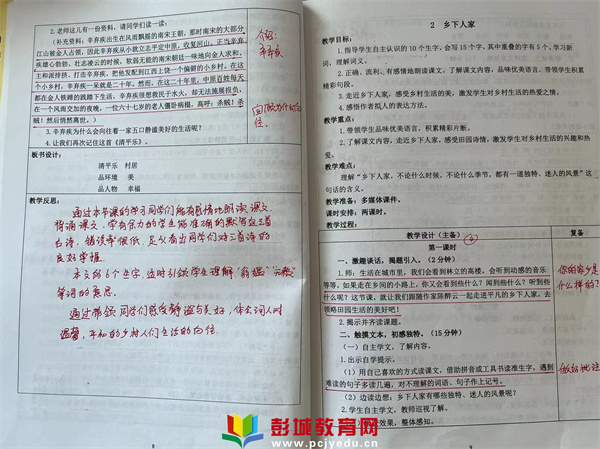 2.老师这儿有一份资料，请同学们读一读：
（补充资料：辛弃疾出生在风雨飘摇的南宋王朝，那时南宋的大部分
江山被金人占领，因此辛弃疾从小就立志平定中原，收复河山。正当辛弃
疾雄心勃勃，壮志凌云的时候，软弱无能的南宋朝廷一味地向金人求和，
主和派排挤、打击辛弃疾，把他发配到江西上饶一个偏僻的小乡村，在这
个小乡村，辛弃疾一呆就是二十年。然而，在这二十年里，中原百姓每天
都在金人铁蹄的践踏下生活，辛弃疾很想救民于水火，却无法施展报负，
在一个风雨交加的夜晚，一位六十七岁的老人僵卧病榻，高呼：杀贼！杀
贼！然后悄然离世。）
3.辛弃疾为什么会向往着一家五口静谧美好的生活呢？
4.让我们再次记住这首《清平乐》。
介绍
辛弃疾
板书设计：
清平乐 村居
品环境 美
品人物 幸福
教学反思：
通过本节课的学习同学们能有感情地朗读课文，
背诵课文，学有余力的学生能准确的默写这三首
古诗，错误率很低，足以看出同学们对三首诗的
良好掌握。
本文的6个生字，适时引领学生理解
等词的意思。
通过带领同学们感受静谧与美好，体会词人对
温馨、平和的乡村人们生活的向往。
2 乡下人家
教学目标：
1.指导学生自主认识的10个生字，会写15个字，其中重叠的字有5个。学习新
词，理解词义。
2.正确、流利、有感情地朗读课文，了解课文内容，品味优美语言，带领学生积累
精彩句段。
3.走近乡下人家，感受乡村生活的美，激发学生对乡村生活的热爱之情。
4.感悟作者拟人的表达方法。
教学重点：
1.带领学生品味优美语言，积累精彩片断。
2.了解课文内容，走近乡下人家，感受田园诗情，激发学生对乡村生活的兴趣和热
爱。
教学难点：
理解“乡下人家，不论什么时候，不论什么季节，都有一道独特、迷人的风景”这
句话的含义。
教学准备：多媒体课件。
课时安排：两课时。
教学过程：
教学设计（主备）
复备
第一课时
一、激趣谈话，揭题引入。（2分钟）
1.师：生活在城市里，我们会看到林立的高楼，会听到动感的音乐
等等。如果走在乡间的小路上，你又会看到些什么？闻到些什么？听到些
什么呢？这节课，就让我们跟随作家陈醉云一起走进平凡的乡下人家，去
领略田园生活的美好吧！
2.揭示并齐读课题。
你的家乡是
什么样的？
二、触摸文本，初感独特。（15分钟）
（一）自主学文，了解内容。
1.出示自学提示。
（1）用自己喜欢的方式读课文，借助拼音或工具书读准生字，遇到
难读的句子多读几遍，对不理解的词语、句子作上记号。
（2）边读边想：乡下人家有哪些独特、迷人的风景呢？
2.学生自主学文，教师巡视了解。
效果，整体感知。
做好批注
彭城教育网
www.pcjyedu.cn